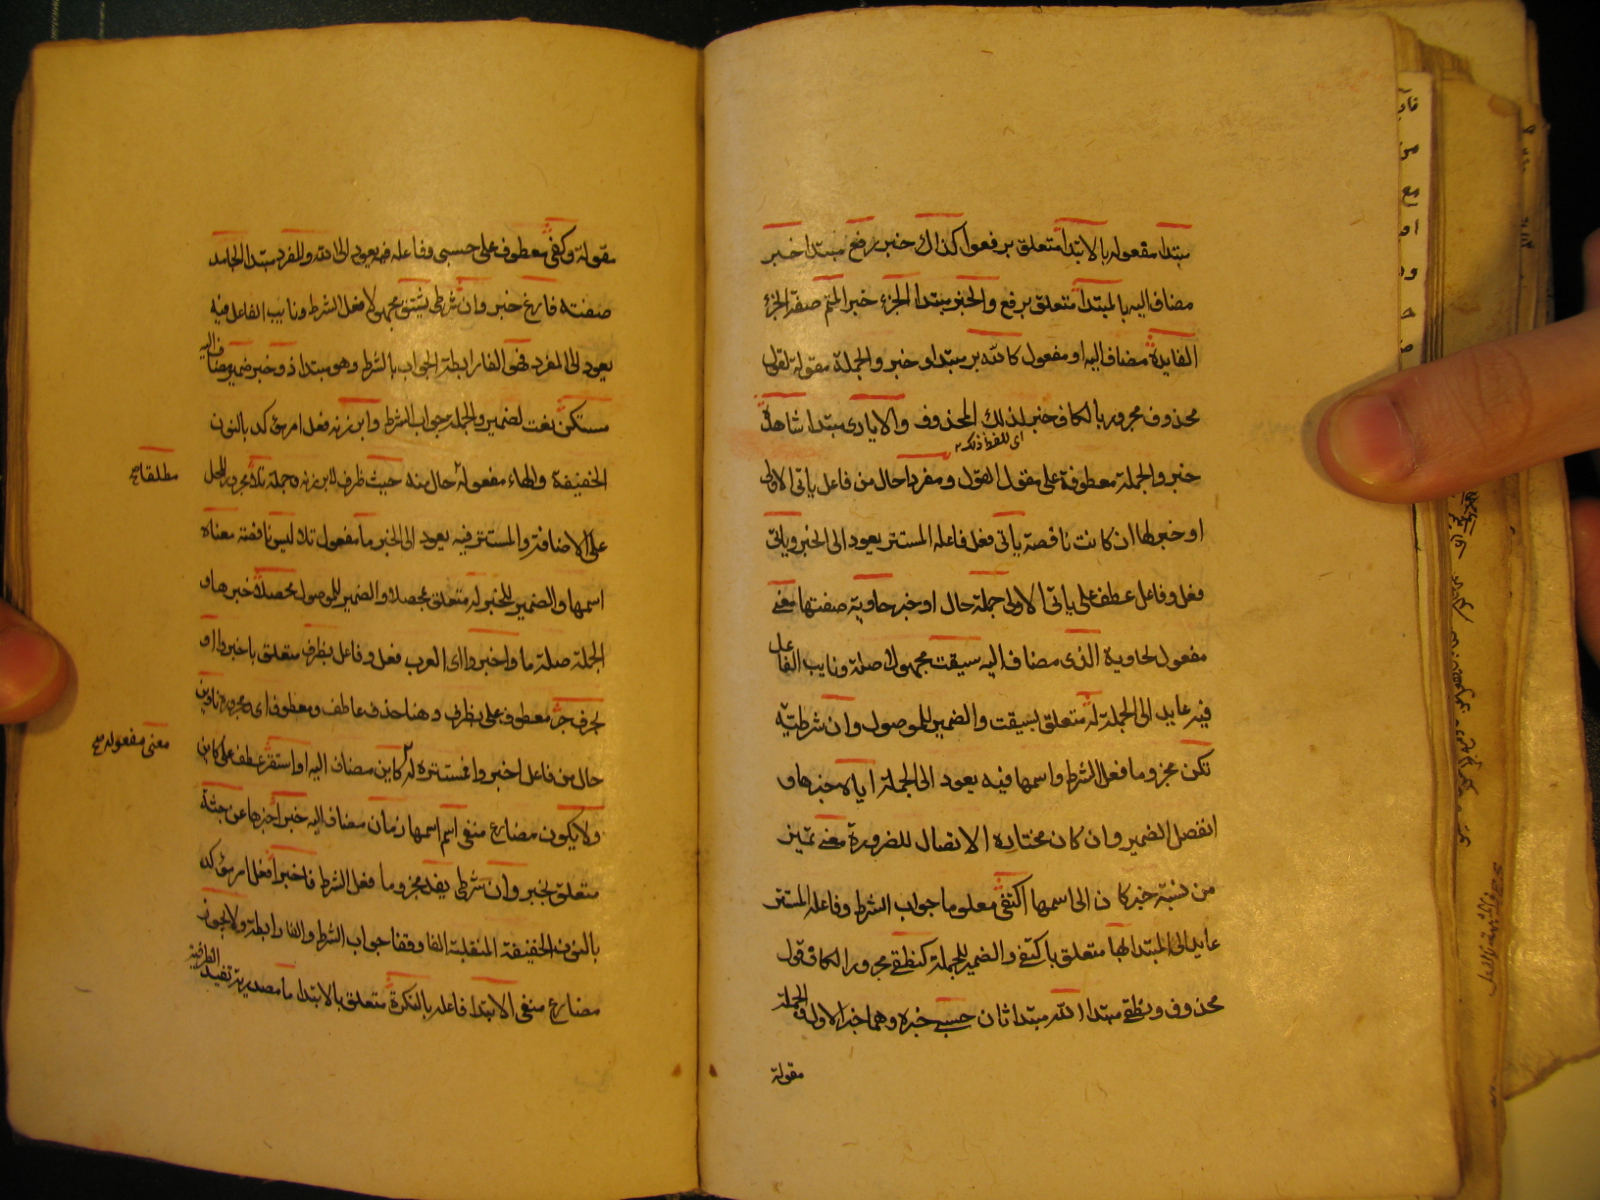 مبتدا مفعوله بالابتدا متعلق برفعوا كذاك خبر رفع مبتدا خبر
مضاف اليه بالمبتدا متعلق برفع والخبر مبتدا الجزء خبر المتم صفة الجزء
الفايدة مضاف اليه او مفعول كالله بر مبتدا وخبر والجملة مقولة لقول
محذوف مجرور بالكاف خبر لذلك المحذوف والايادى مبتدا شاهدة
اى للفظ ذلك
خبر والجملة معطوفة على مقول القول ومفردا حال من فاعل ياتى الاولى
او خبرها ان كانت ناقصة ياتى فعل فاعله المستتر يعود الى الخبر وياتى
فعل وفاعل عطف على ياتى الاولى جملة حال او خبر حاوية صفتها معنى
مفعول لحاوية الذى مضاف اليه سيقت مجهولا صلة ونايب الفاعل
فيه عايد الى الجملة له متعلق بسيقت والضمير للموصول وان شرطية
تكن مجزوما فعل الشرط واسمها فيه يعود الى الجملة اياه خبرها و
انفصل الضمير وان كان مختاره الاتصال للضرورة معنى تميز
من نسبة خبر كان الى اسمها اكتفى معلوما جواب الشرط وفاعله المستتر
عايد الى المبتدا بها متعلق باكتفى والضمير للجملة كنطقى مجرور الكاف قول
محذوف ونطقى مبتدا الله مبتدا ثان حسبى خبره وهما خبر الاول والجملة
مقولة
مقولة وكفى معطوف على حسبى وفاعله فيه يعود الى الله والمفرد مبتدا الجامد
صفته فارغ خبر وان شرطى يشتق مجهولا فعل الشرط ونايب الفاعل فيه
يعود الى المفرد فهو الفا رابطة الجواب بالشرط وهو مبتدا ذو خبر ضمير مضاف اليه
مستكن نعت لضمير والجملة جواب الشرط وابرزنه فعل امر مؤكد بالنون
الخفيفة والهاء مفعوله حال منه حيث ظرف لابرزنه وجملة تلا مجرور المحل
مطلقا صح
على الاضافة والمستتر فيه يعود الى الخبر ما مفعول تلا ليس ناقصة معناه
اسمها والضمير للخبر له متعلق محصلا والضمير للموصول محصلا خبرها و
الجملة صلة ما واخبروا اى العرب فعل وفاعل بظرف متعلق باخبروا او
بحرف جر معطوف على بظرف وهنا حذف عاطف ومعطوف اى مجروره ناوين
حال من فاعل اخبروا مستتره له كاين مضاف اليه او استقر عطف على كاين
معنى مفعوله صح
ولا يكون مضارع منفى اسم اسمها زمان مضاف اليه خبرا خبرها عن جثة
متعلق بخبر وان شرطى يفد مجزوما فعل الشرط فاخبرا فعل امر مؤكد
بالنون الخفيفة المنقلبة الفا وقفا جواب الشرط والفا رابطة ولا يجوز
مضارع منفى الابتدا فاعله بالنكرة متعلق بالابتدا ما مصدرية تفيد الظرفية